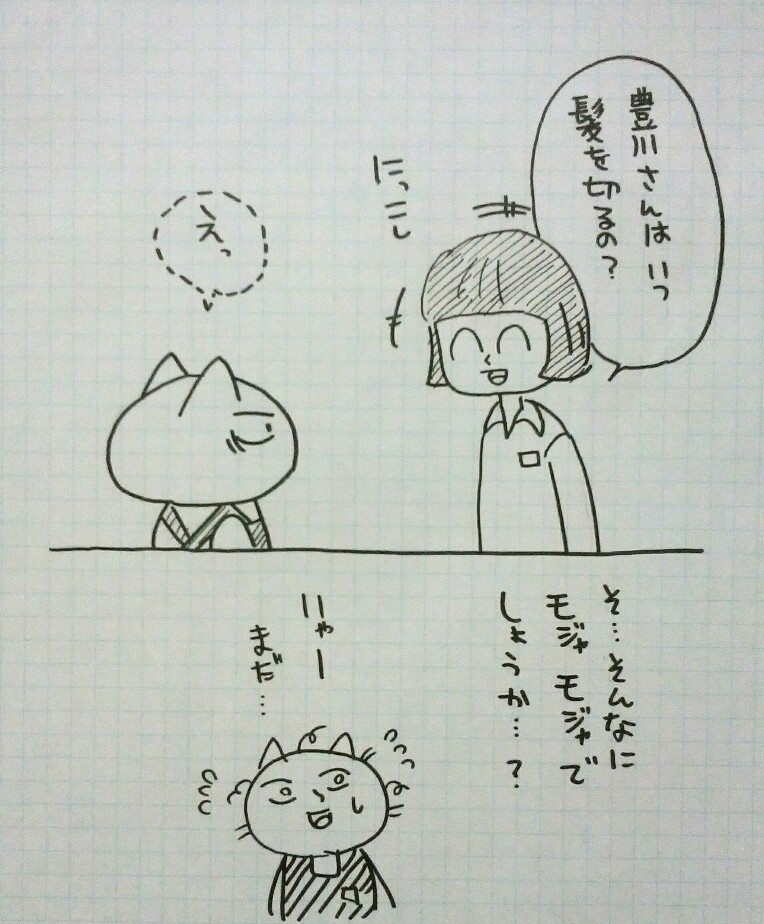 豊川さんはいつ
髪を切るの？
にっこし
えっ
そ…そんなに
モジャモジャで
しょうか…？
いやー
まだ…